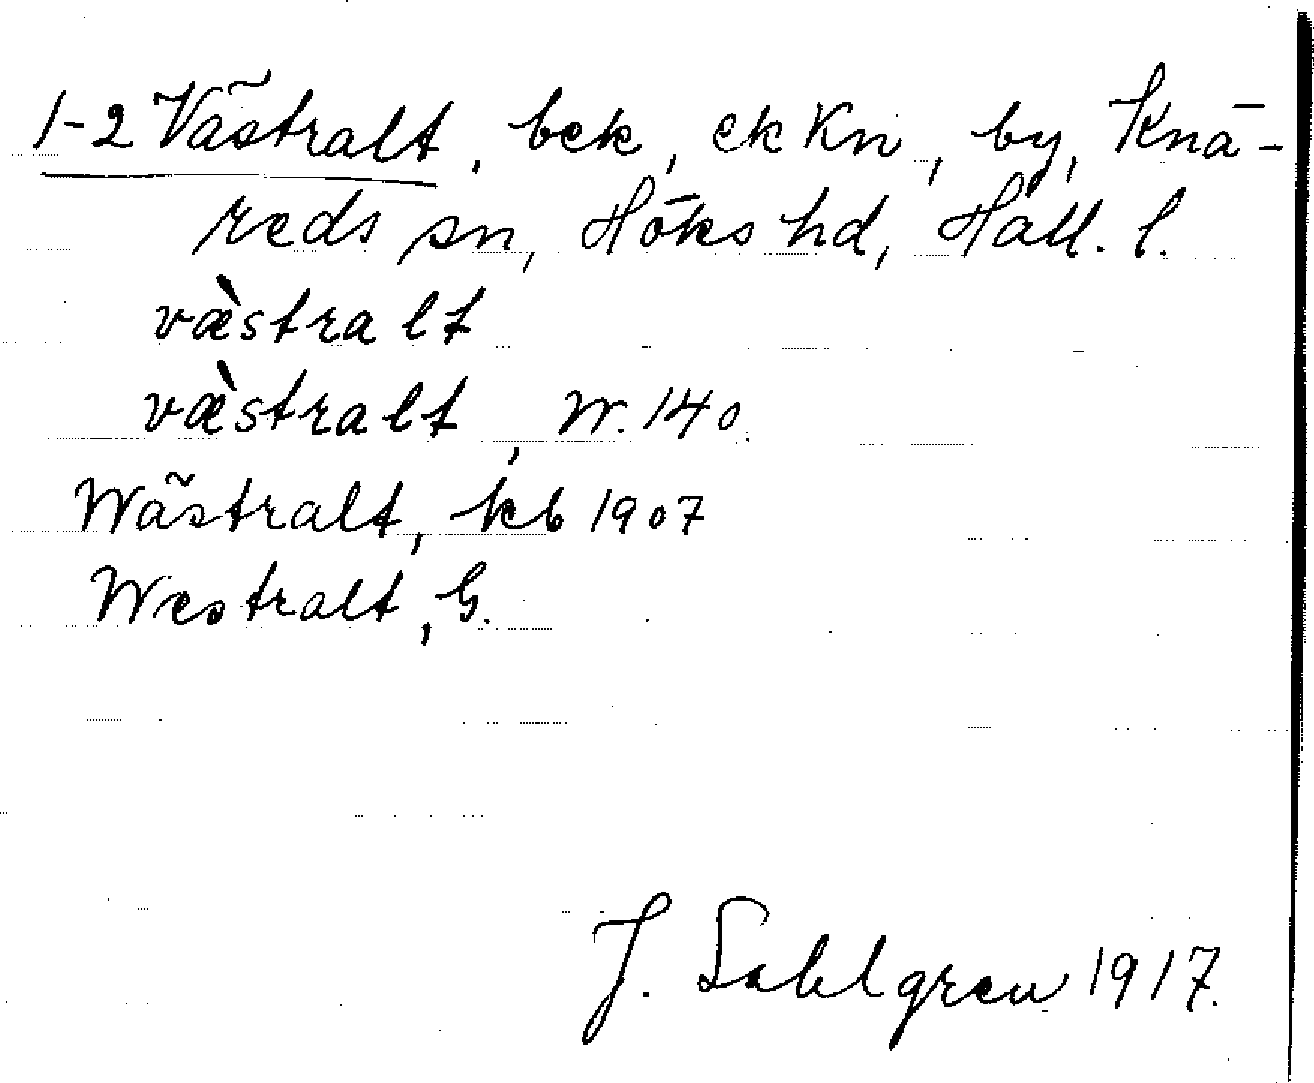 1-2 Västralt, bek, ek Kn, by, Knä-
reds sn, Höks hd, Hall. l.
væ̀stralt
væ̀stralt, W. 140.
Wästralt, kb 1907
Westralt, G.
J. Sahlgren 1917.